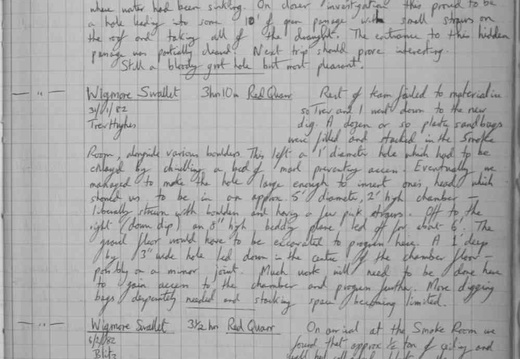 where water had been sinking. On closer investigation this proved to be
a hole leading into some 10' of open passage with small straws on
the roof and taking all of the draught. The entrance to this hidden
passage was partially cleared. Next trip should prove interesting.
Still a bloody great hole but most pleasant.
Wigmore Swallet 3hr 10m Red Quarr Rest of team failed to materialise
31/1/82 so Trev and I went down to the new
Trev Hughes dig. A dozen or so plastic sandbags
were filled and stacked in the Smoke
Room, alongside various boulders. This left a 1' diameter hole which had to be
enlarged by chiselling a bed of marl preventing access. Eventually we
managed to make the hole large enough to insert ones head which
should us to be in an approx 5' diameter, 2' high chamber –
liberally strewn with boulders and having a few pink stringers. Off to the
right (down dip) an 8" high bedding plane led off for about 6'. The
gravel floor would have to be excavated to progress here. A 1' deep
by 3" wide hole led down in the centre of the chamber floor –
possibly on a minor joint. Much work will need to be done here
to gain access to the chamber and progress further. More digging
bags desperately needed and stacking space becoming limited.
Wigmore Swallet 3½ hrs Red Quarr On arrival at the Smoke Room we
6/2/82 found that approx ½ ton of ceiling and
Blitz